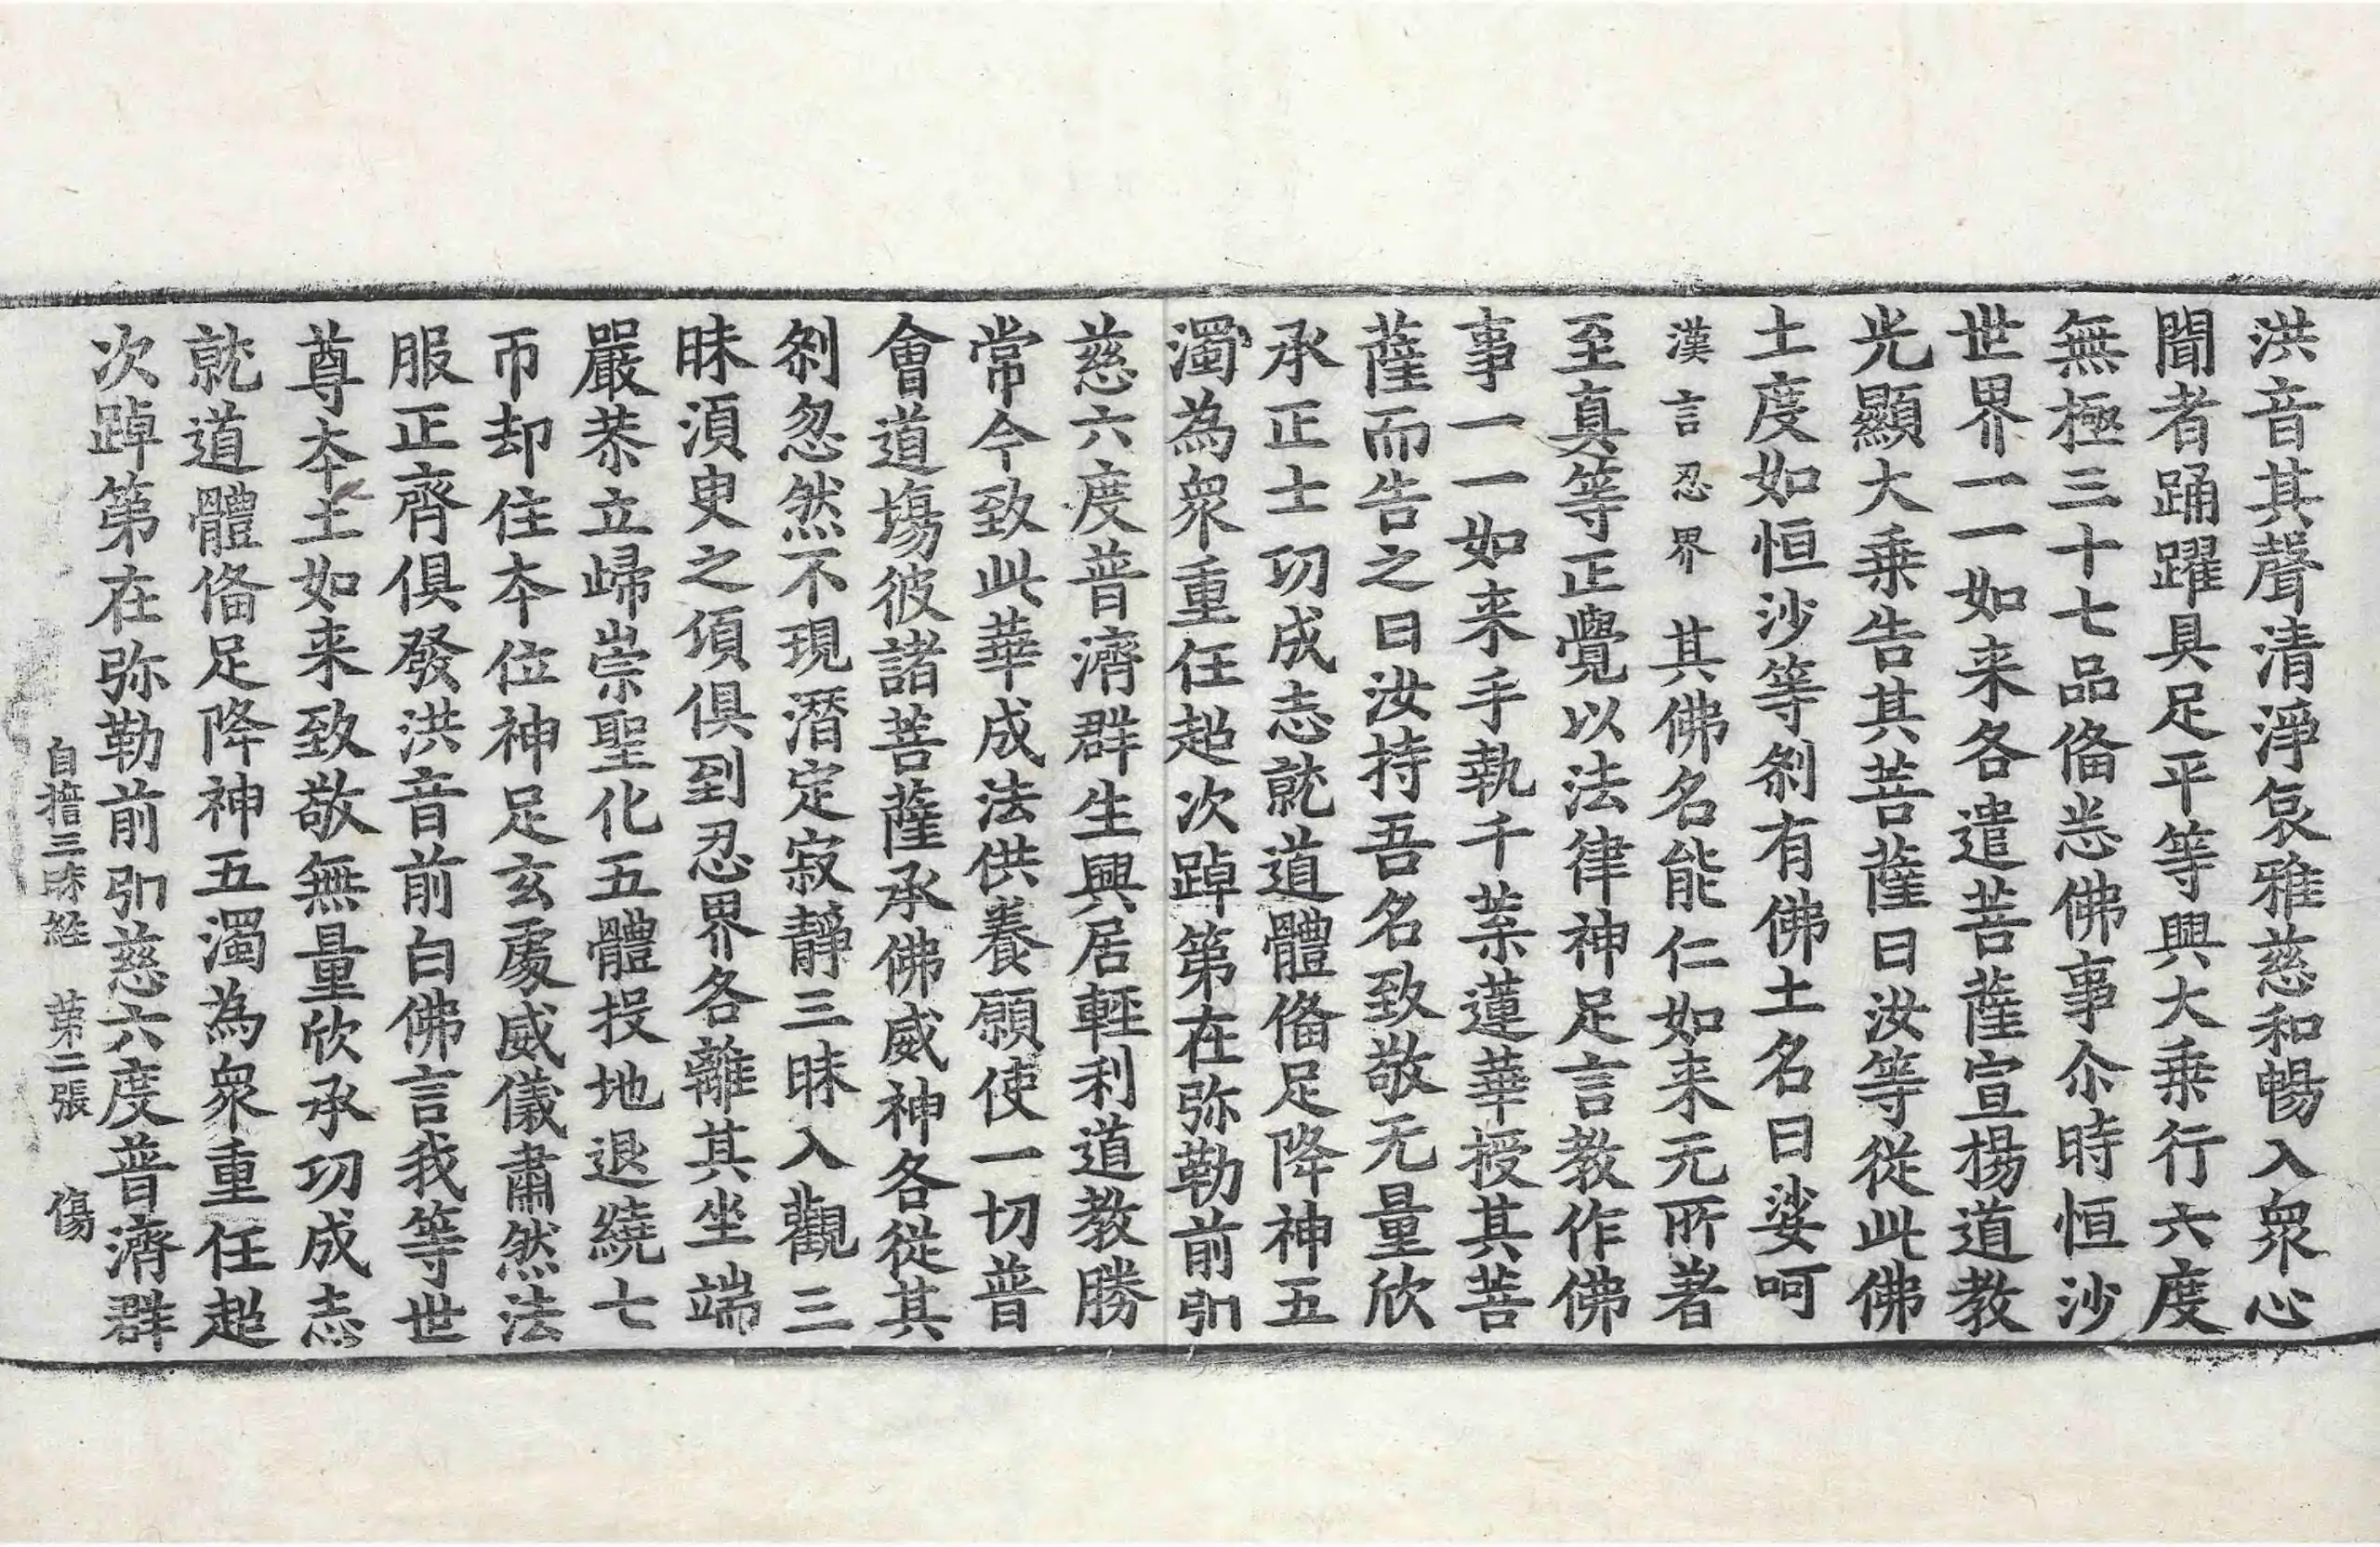 洪音其聲清淨哀雅慈和暢入衆心
聞者踊躍具足平等興大乗行六度
無極三十七品俻悉佛事尒時恒沙
世界一一如来各遣菩薩宣揚道教
光顯大乗告其菩薩曰汝等從此佛
土度如恒沙等刹有佛土名曰娑呵
漢言忍界 其佛名能仁如来元所著
至真等正覺以法律神足言教作佛
事一一如来手執千葉蓮華授其菩
薩而告之曰汝持吾名致敬无量欣
承正士功成志就道體俻足降神五
濁為衆重任超次踔第在弥勒前引
慈六度普濟群生興居輕利道教勝
常今致此華成法供養願使一切普
會道場彼諸菩薩承佛威神各從其
刹忽然不現潛定寂靜三昧入觀三
昧湏臾之頃俱到忍界各離其坐端
嚴恭立歸崇聖化五體投地退繞七
帀却住本位神足玄處威儀肅然法
服正齊俱發洪音前白佛言我等世
尊本土如来致敬無量欣承功成志
就道體俻足降神五濁為衆重任超
次踔第在弥勒前引慈六度普濟群
自誓三昧經 第二張 傷